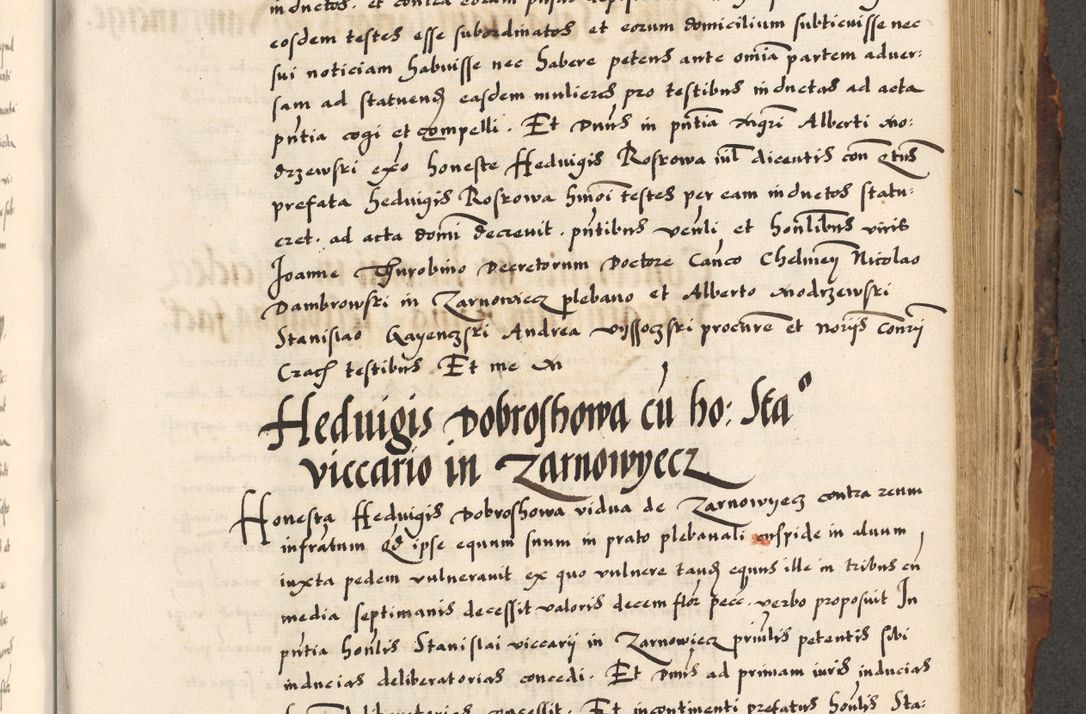 inductos. et contra eorum
eosdem testes esse subordinatos et eorum domicilium subticuisse nec
sui noticiam habuisse nec habere petens ante omia partem adver:
sam ad statuend easdem mulieres pro testibus inductas ad acta
pntia cogi et compelli. Et Dnus in pntia mgri Alberti mo:
drzewski exo honeste Hedvigis Roskowa iul dicentis con
prefata hedvigis Roskowa hmoi testes per eam inductos statu:
eret. ad acta domi decrevit. pntibus venli et honlibus viris
Joanne Thurobino Decretorum Doctore Canco Chelmen Nicolao
Dambrowski in Zarnowiecz plebano et Alberto modrzewski
Stanislao Gayenczski Andrea Wyssoczski procure et noriis Conrii
Crac testibus Et me m
Hedvigis Dobroshowa cu ho: Sta°
viccario in Zarnowyecz
Honesta Hedvigis Dobroshowa vidua de Zarnowyecz contra reum
infratum Qd ipse equum suum in prato plebanali cuspide in alvum
iuxta pedem vulneravit ex quo vulnere tand equus ille in tribus cu
media septimanis decessit valoris decem flor pecc. verbo proposuit In
pntia honlis Stanislai viccarii in Zarnowiecz priulis petentis sibi
inducias deliberatorias concedi. Et Dnus ad primam iuris inducias
deliberatorias concessit. Et incontinenti prefatus honlis Sta: